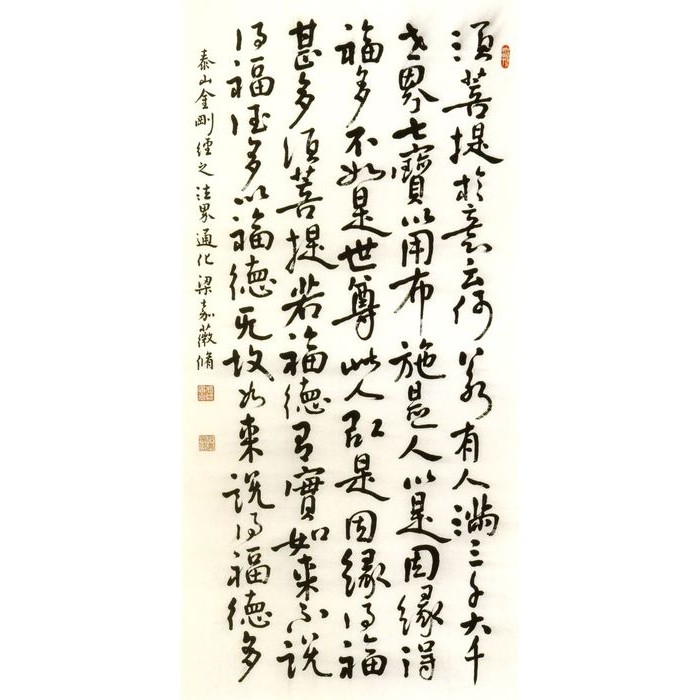 須菩提於意云何若有人滿三千大千
世界七寶以用布施是人以是因緣得
福多不如是世尊此人以是因緣得福
甚多須菩提若福德有實如來不說
得福德多以福德无故如來說得福德多
泰山金剛經之法界通化梁嘉薇脩